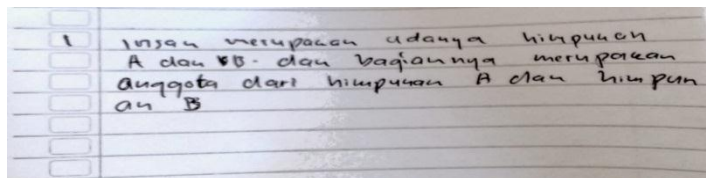 1 insan merupakan adanya himpunan
A dan B. dan bagiannya merupakan
anggota dari himpunan A dan himpun
an B